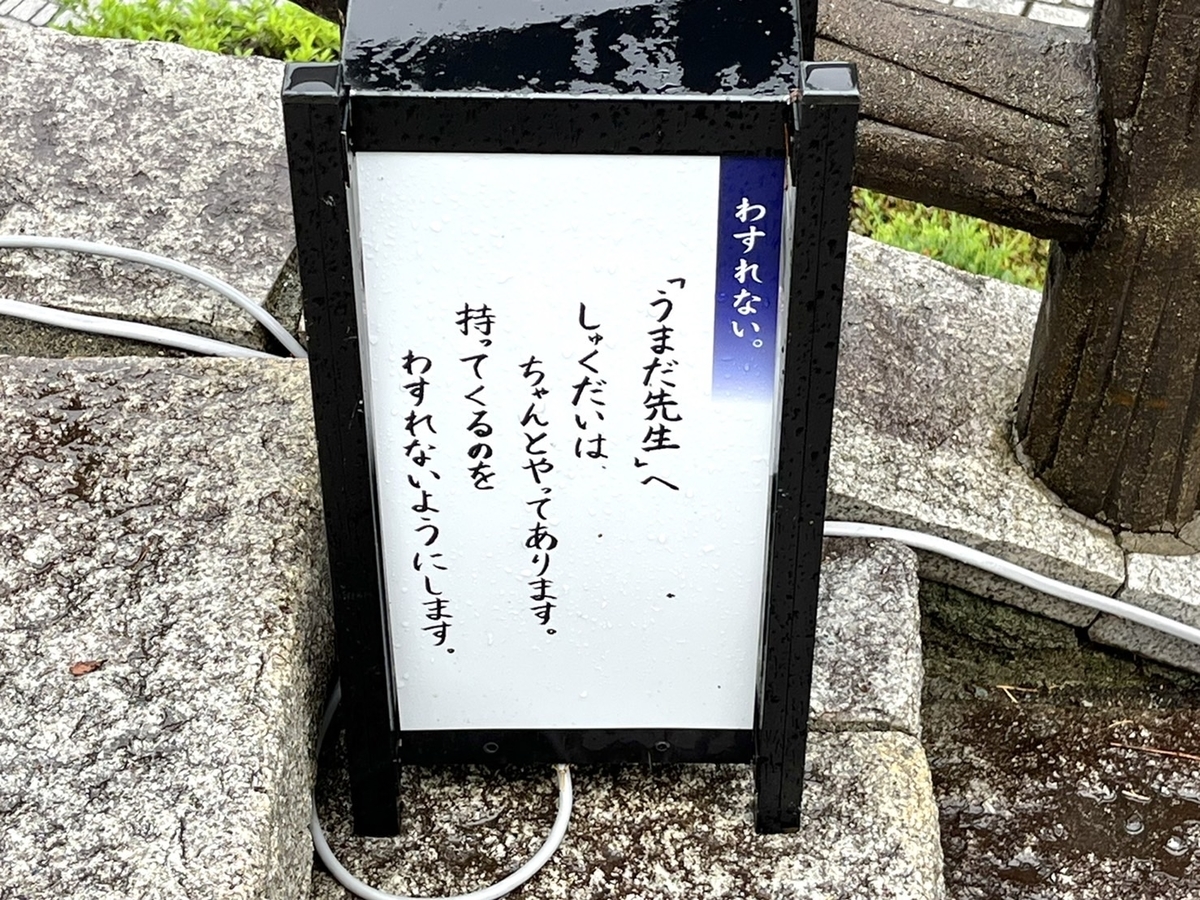 わすれない。
「うまだ先生」へ
しゅくだいは、
ちゃんとやってあります。
持ってくるのを
わすれないようにします。